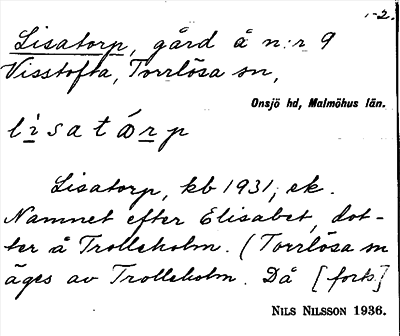 1-2.
Lisatorp, gård å n:r 9
Visstofta, Torrlösa sn,
Onsjö hd, Malmöhus län.
lisatårp
Lisatorp, kb 1931, ek.
Namnet efter Elisabet, dot-
ter å Trolleholm. (Torrlösa sn
äges av Trolleholm. Då [forts.]
NILS NILSSON 1936.